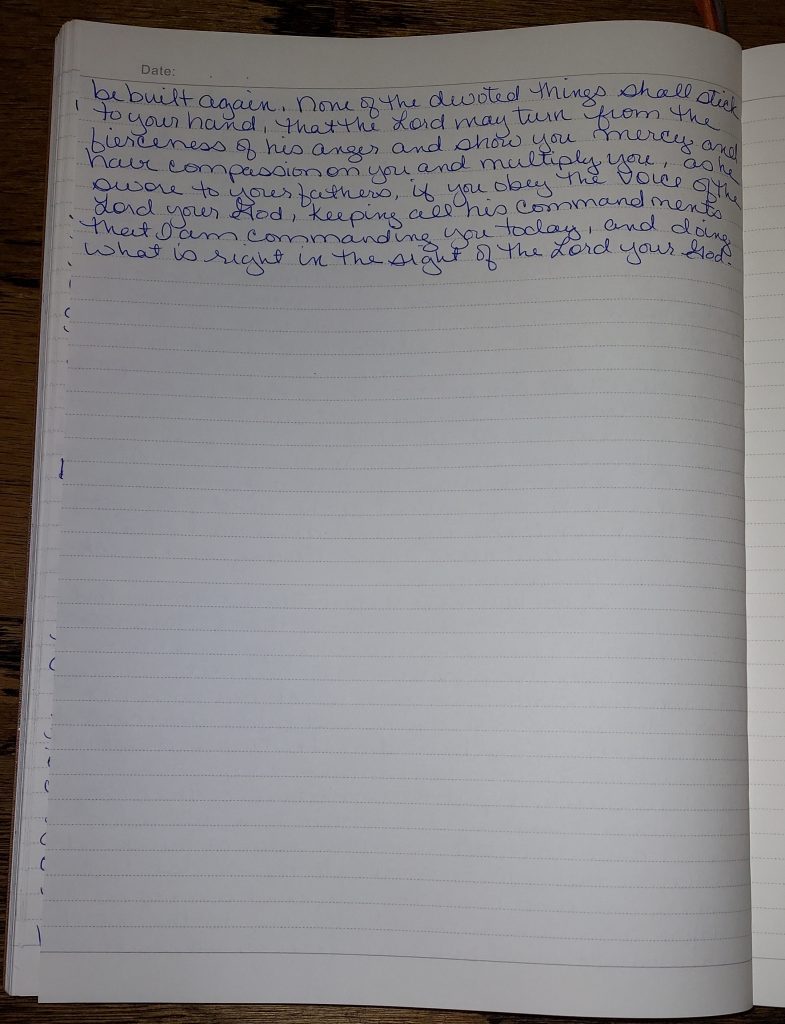 Date:
be built again. None of the devoted things shall stick
to your hand, that the Lord may turn from the
fierceness of his anger and show you mercy and
have compassion on you and multiply you, as he
swore to your fathers, if you obey the voice of the
Lord your God, keeping all his commandments
that I am commanding you today, and doing
what is right in the sight of the Lord your God.